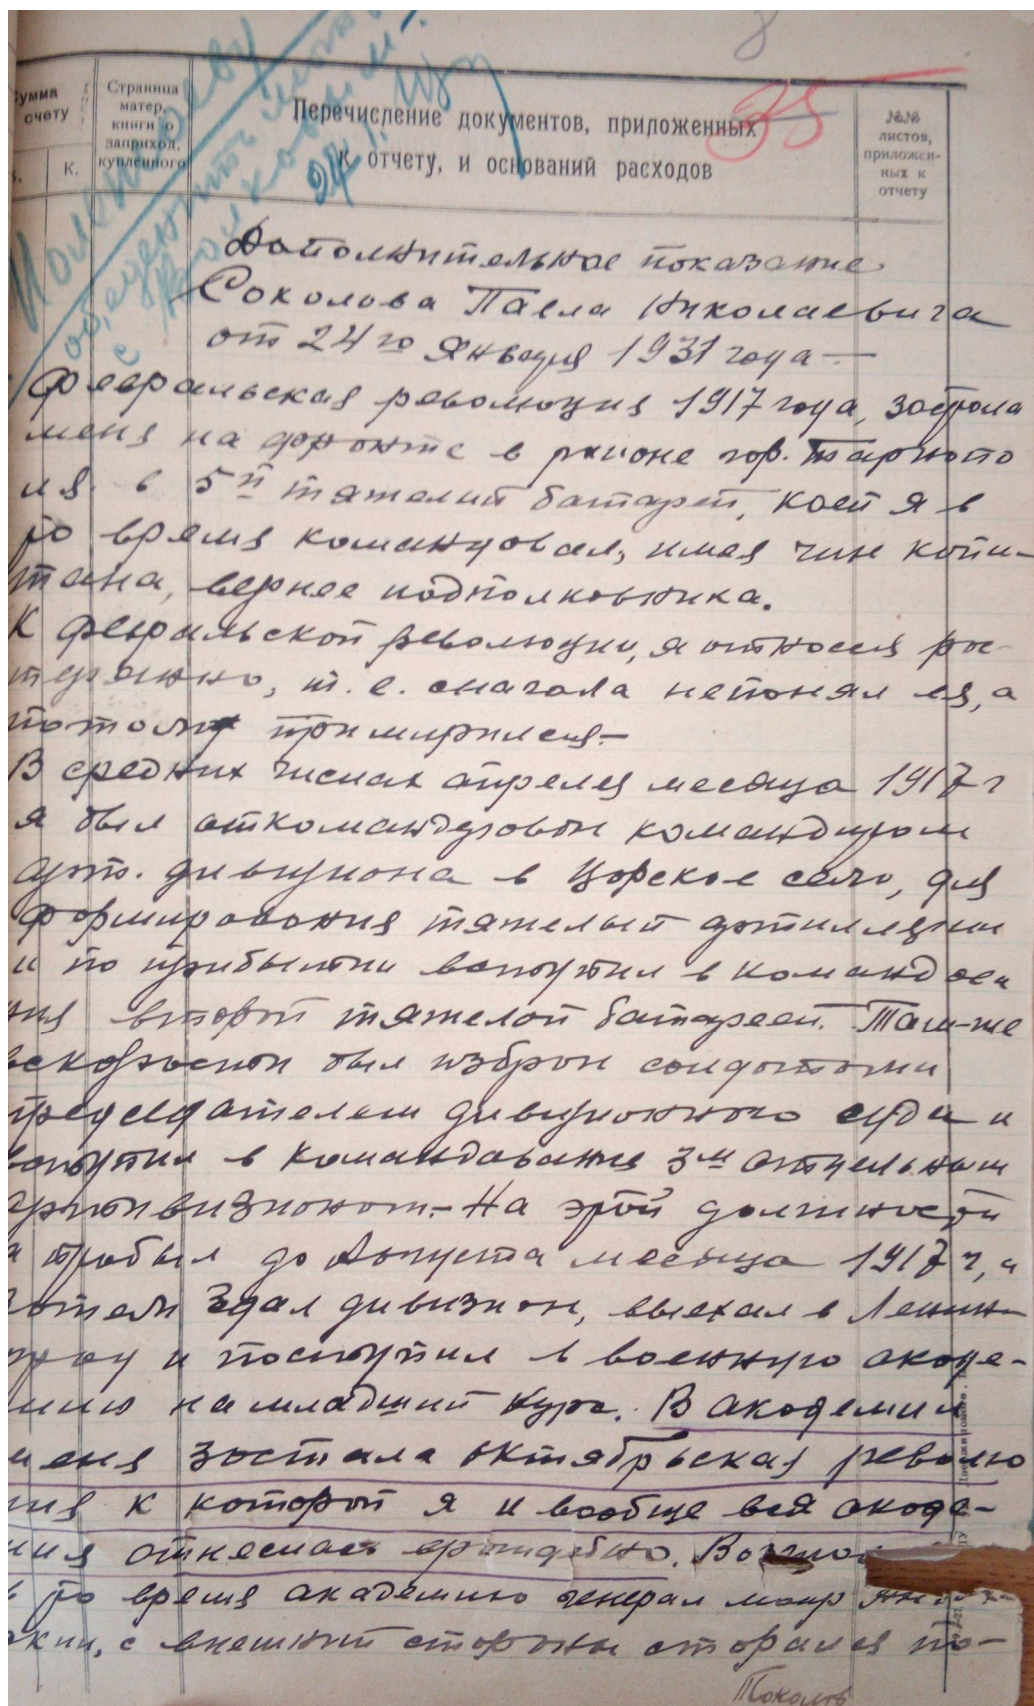 8
35
Сумма
счету
К.
Страница
матер.
книги о
заприход.
купленного
Перечисление документов, приложенных
к отчету, и оснований расходов
№№
листов,
приложен-
ных к
отчету
Дополнительное показание
Соколова Павла Николаевича
от 24го Января 1931 года —
Февральская революция 1917 года, застала
меня на фронте в районе гор. Тарнопо
ля в 5й тяжелой батареи, коей я в
то время командовал, имея чин капи-
тана, вернее подполковника.
К февральской революции, я относился рас
терянно, т.е. сначала непонял ея, а
потом примирился.—
В средних числах апреля месяца 1917 г
я был откомандирован командиром
арт. дивизиона в Царское село, для
формирования тяжелый артиллерии
и по прибытии вступил в командова
ния второй тяжелой батареей. Там-же
вскорости был избран солдатами
председателем дивизионного суда и
вступил в командования 3м отдельным
артдивизионом.— На этой должности
я пробыл до Августа месяца 1917 г, а
Затем Здал дивизион, выехал в Ленин-
град и поступил в военную акаде-
мию на младший курс. В академии
меня застала октябрьская револю
ция к которой я и вообще вся акаде-
мия отнеслась враждебно.
в то время академию генерал маиор
с внешний стороны старался по-